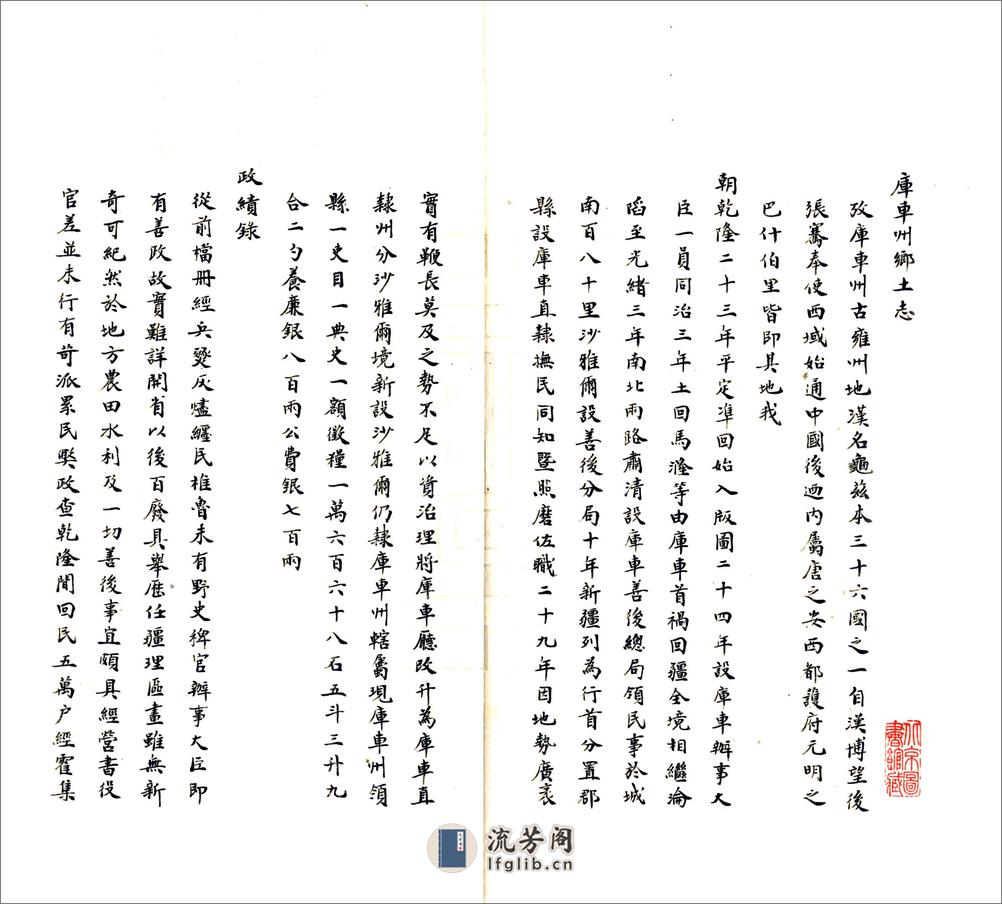 庫車州鄉土志
攷庫車州古雍州地漢名龜茲本三十六國之一自漢博望後
張騫奉使西域始通中國後迺內屬唐之安西都護府元明之
巴什伯里皆即其地我
朝乾隆二十三年平定準回始入版圖二十四年設庫車辦事大
臣一員同治三年土回馬漋等由庫車首禍回疆全境相繼淪
陷至光緒三年南北兩路肅清設庫車善後總局領民事於城
南百八十里沙雅爾設善後分局十年新疆列為行首分置郡
縣設庫車直隸撫民同知暨照磨佐職二十九年因地勢廣袤
實有鞭長莫及之勢不足以資治理將庫車廳改升為庫車直
隸州分沙雅爾境新設沙雅爾仍隸庫車州轄屬現庫車州領
縣一吏目一典史一額徵糧一萬六百六十八石五斗三升九
合二勺養廉銀八百兩公費銀七百兩
政績錄
從前檔冊經兵燹灰燼纏民椎魯未有野史稗官辦事大臣即
有善政故實難詳開省以後百廢具舉歷任疆理區畫雖無新
奇可紀然於地方農田水利及一切善後事宜頗具經營書役
官差並未行有苛派累民獘政查乾隆間回民五萬户經霍集
北京圖
書館藏
流芳阁
lfglib.cn